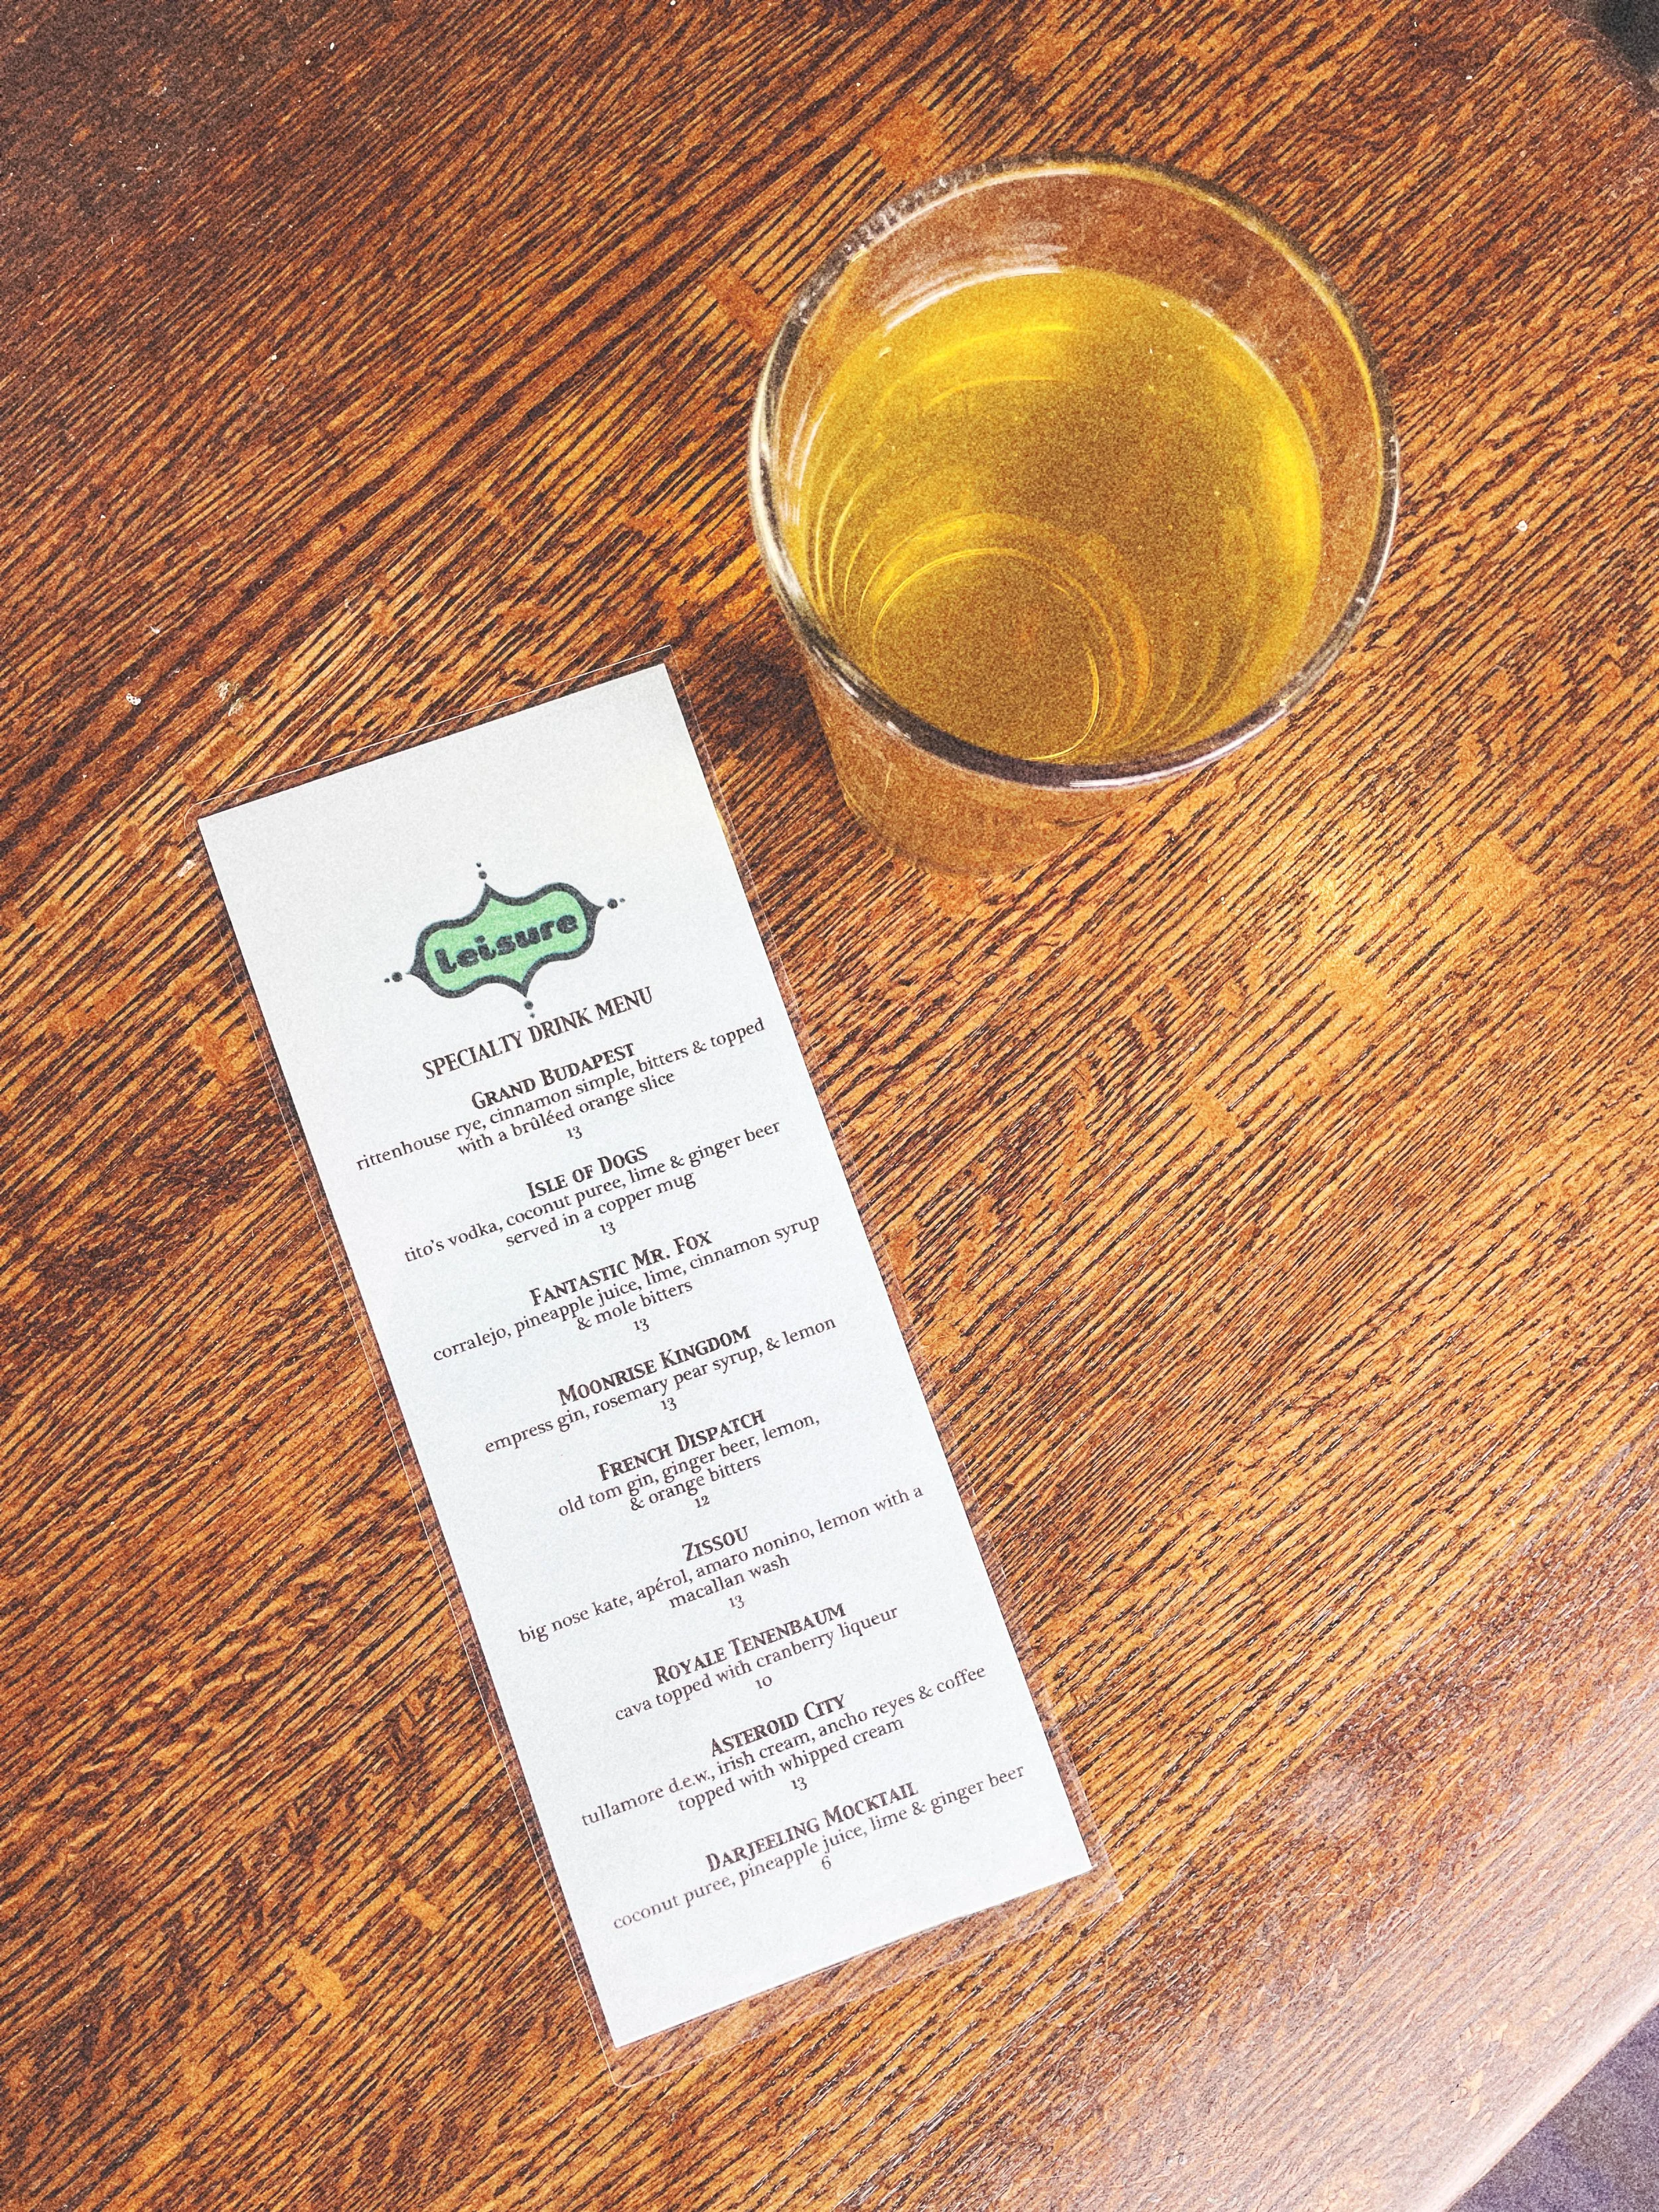 leisure
SPECIALTY DRINK MENU
GRAND BUDAPEST
rittenhouse rye, cinnamon simple, bitters & topped
with a brûléed orange slice
13
ISLE OF DOGS
tito's vodka, coconut puree, lime & ginger beer
served in a copper mug
13
FANTASTIC MR. FOX
corralejo, pineapple juice, lime, cinnamon syrup
& mole bitters
13
MOONRISE KINGDOM
empress gin, rosemary pear syrup, & lemon
13
FRENCH DISPATCH
old tom gin, ginger beer, lemon,
& orange bitters
12
ZISSOU
big nose kate, apérol, amaro nonino, lemon with a
macallan wash
13
ROYALE TENENBAUM
cava topped with cranberry liqueur
10
ASTEROID CITY
tullamore d.e.w., irish cream, ancho reyes & coffee
topped with whipped cream
13
DARJEELING MOCKTAIL
coconut puree, pineapple juice, lime & ginger beer
6